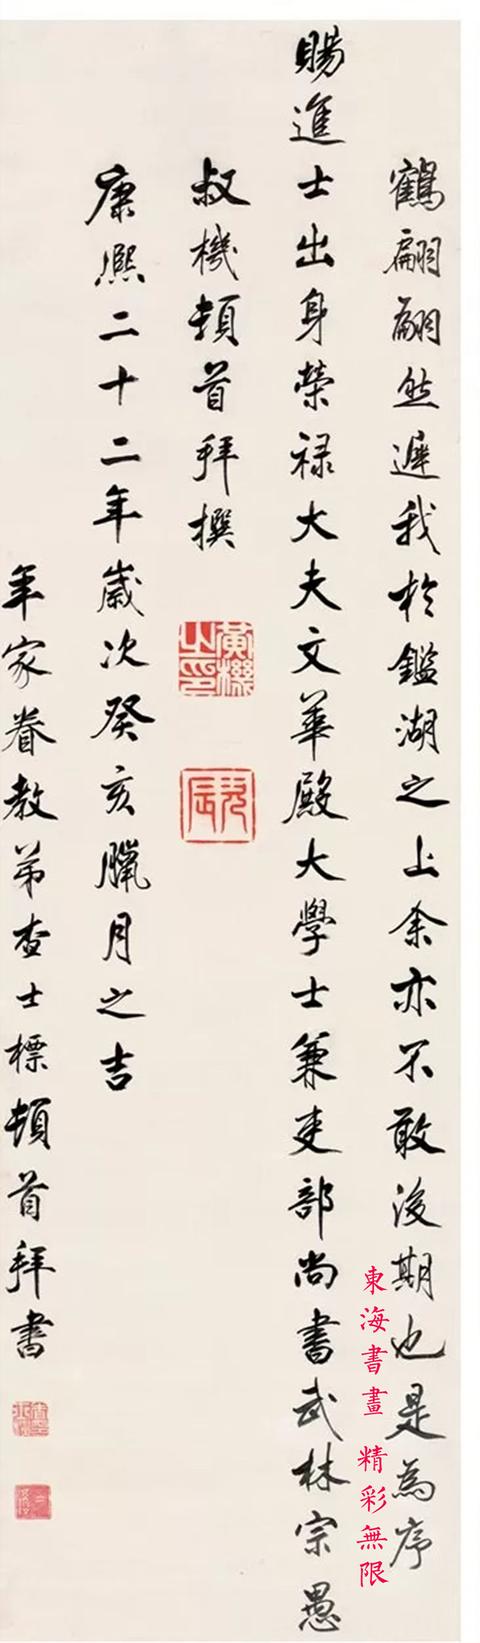 鶴翩翩然遲我於鑑湖之上余亦不敢後期也是為序
賜進士出身榮祿大夫文華殿大學士兼吏部尚書武林宗愚
叔機頓首拜撰
黃機之印
康熙二十二年歲次癸亥臘月之吉
年家眷教弟查士標頓首拜書
東海書畫 精彩無限